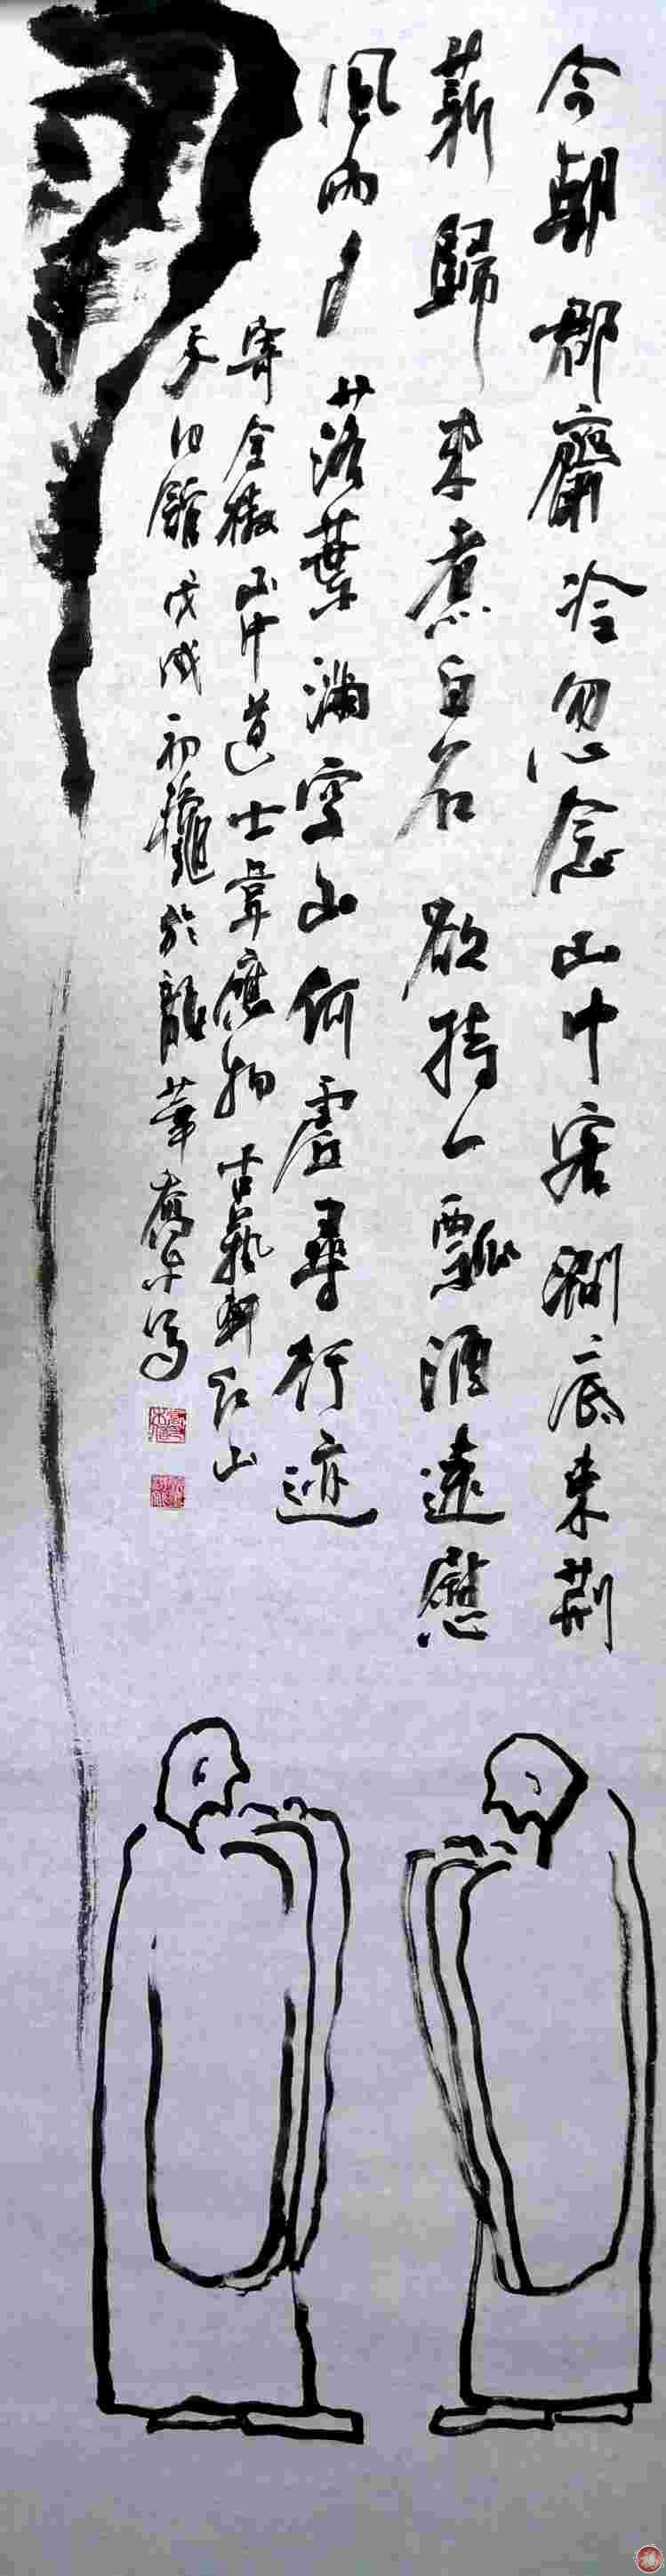 今朝郡齋冷忽念山中客澗底束荊
薪歸来煮白石欲持一瓢酒遠慰
風雨夕落葉滿空山何處尋行迹
寄全椒山中道士韋應物 古藝軒红山
館戊戌初龝於龍華喬木写
福